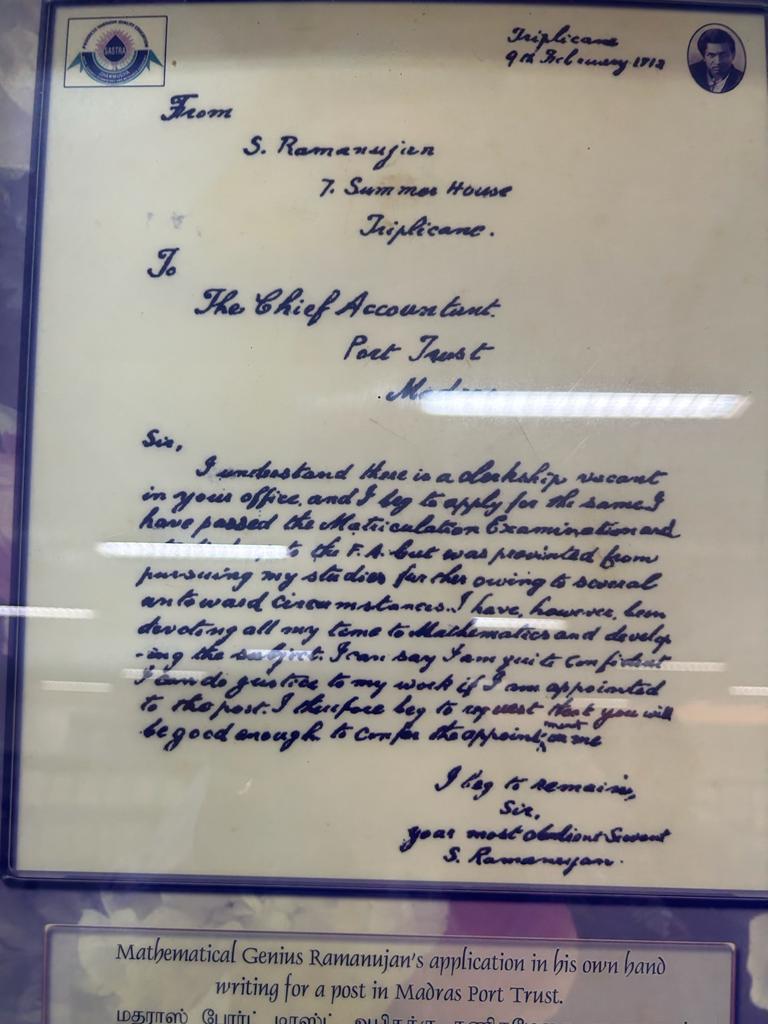 SASTRA
Triplicane
9th February 1912
From
S. Ramanujan
7. Summer House
Triplicane.
To
The Chief Accountant.
Port Trust
Sir,
I understand there is a clerkship vacant
in your office, and I beg to apply for the same. I
have passed the Matriculation Examination and
to the F.A. but was prevented from
pursuing my studies further owing to several
untoward circumstances. I have, however, been
devoting all my time to Mathematics and develop
-ing the subject. I can say I am quite confident
I can do justice to my work if I am appointed
to the post. I therefore beg to request that you will
be good enough to confer the appointment on me
I beg to remain,
Sir,
your most obedient Servant
S. Ramanujan.
Mathematical Genius Ramanujan's application in his own hand
writing for a post in Madras Port Trust.
மதராஸ் போர்ட்